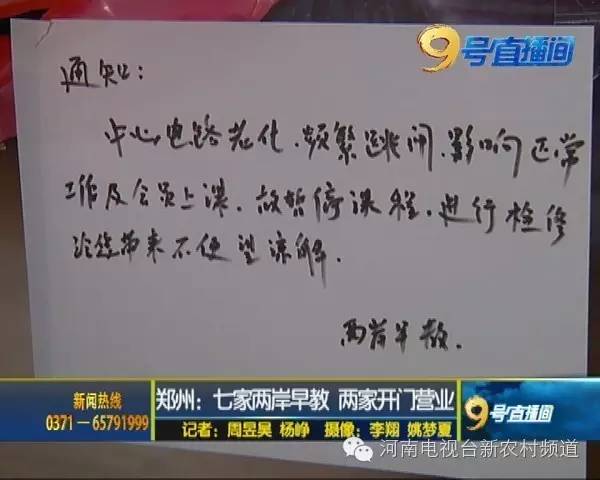 9号直播间
通知:
中心电路老化、频繁跳闸、影响正常
工作及会员上课,故暂停课程,进行检修
给您带来不便望谅解.
两岸早教.
新闻热线
0371—65791999
郑州:七家两岸早教 两家开门营业
记者:周昱昊 杨峥 摄像:李翔 姚梦夏
9号直播间
河南电视台新农村频道